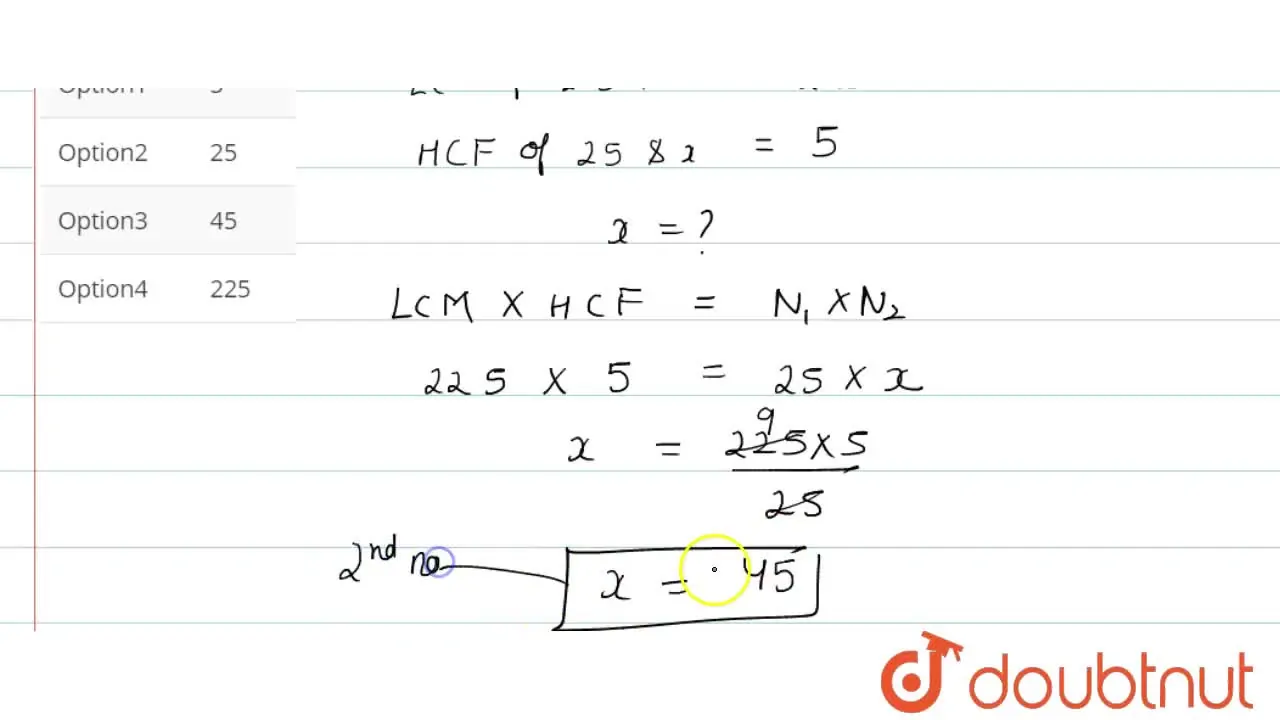 Option2 25
Option3 45
Option4 225
HCF of 25 & x = 5
x = ?
LCM X HCF = N₁ X N₂
225 X 5 = 25 X x
9
x = 225 X 5
25
2nd no
x = 45
doubtnut